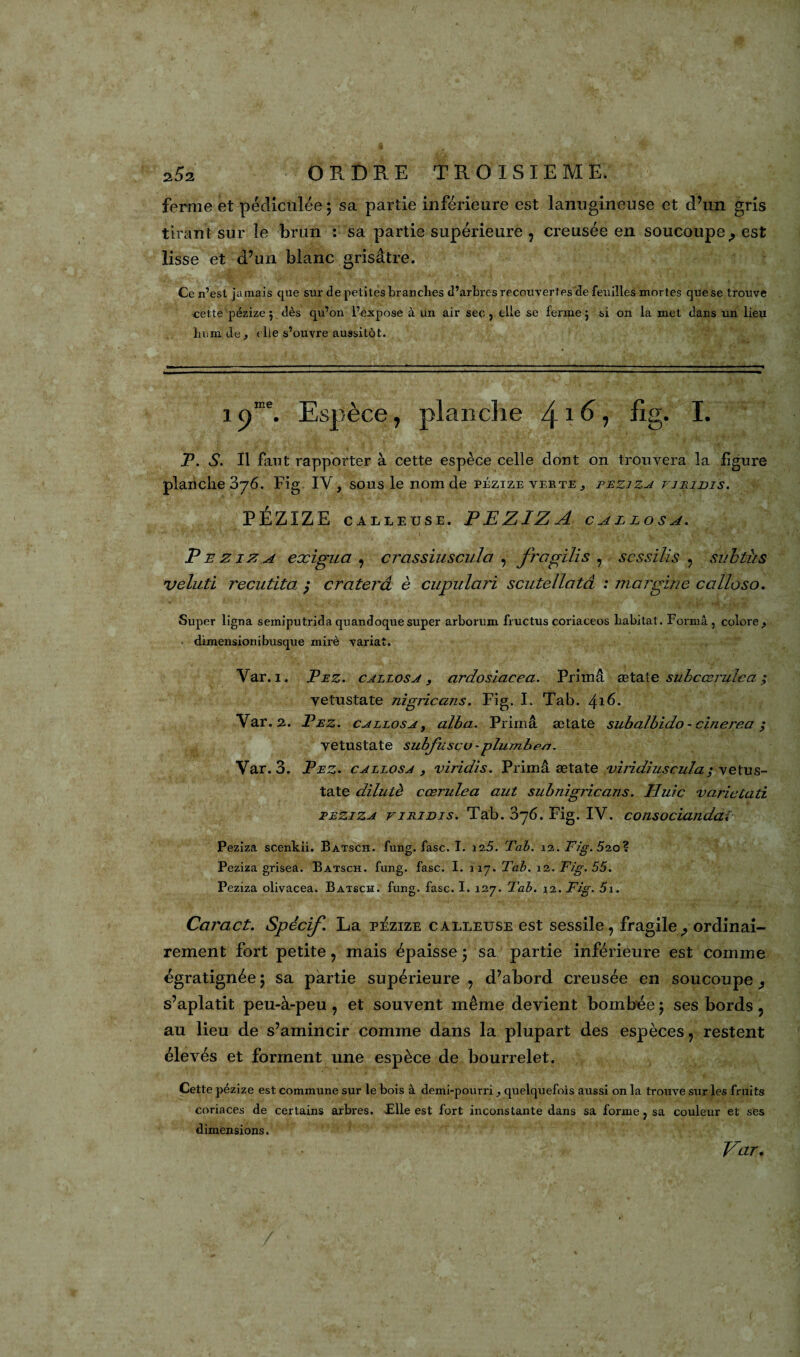 252 ORDRE TROISIEME.
ferme et pédiculée; sa partie inférieure est lanugineuse et d'un gris
tirant sur le brun : sa partie supérieure, creusée en soucoupe, est
lisse et d'un blanc grisâtre.
Ce n'est jamais que sur de petites branches d'arbres recouvertes de feuilles mortes que se trouve
cette pézize; dès qu'on l'expose à un air sec, elle se ferme; si on la met dans un lieu
humide, elle s'ouvre aussitôt.
19me. Espèce, planche 416, fig. I.
P. S. Il faut rapporter à cette espèce celle dont on trouvera la figure
planche 376. Fig. IV, sous le nom de PÉZIZE VERTE, PEZIZA VIRIDIS.
PÉZIZE CALLEUSE. PEZIZA CALLOSA.
PEZIZA exigua, crassiuscula, fragilis, sessilis, subtùs
veluti recutita; craterâ è cupulari scutellatâ : margine calloso.
Super ligna semiputrida quandoque super arborum fructus coriaceos habitat. Formâ, colore,
dimensionibusque mirè variat.
Var. 1. PEZ. CALLOSA, ardosiacea. Primâ ætate subcœrulea;
vetustate nigricans. Fig. I. Tab. 416.
Var. 2. PEZ. CALLOSA, alba. Primâ ætate subalbido-cinerea;
vetustate subfusco-plumbea.
Var. 3. PEZ. CALLOSA, viridis. Primâ ætate viridiuscula; vetus-
tate dilutè cœrulea aut subnigricans. Huic varietati
PEZIZA VIRIDIS. Tab. 376. Fig. IV. consociandai
Peziza scenkii. BATSCH. fung. fasc. I. 125. Tab. 12. Fig. 520?
Peziza grisea. BATSCH. fung. fasc. I. 117. Tab. 12. Fig. 55.
Peziza olivacea. BATSCH. fung. fasc. I. 127. Tab. 12. Fig. 51.
Caract. Spécif. La PÉZIZE CALLEUSE est sessile, fragile, ordinai-
rement fort petite, mais épaisse; sa partie inférieure est comme
égratignée; sa partie supérieure, d'abord creusée en soucoupe,
s'aplatit peu-à-peu, et souvent même devient bombée; ses bords,
au lieu de s'amincir comme dans la plupart des espèces, restent
élevés et forment une espèce de bourrelet.
Cette pézize est commune sur le bois à demi-pourri, quelquefois aussi on la trouve sur les fruits
coriaces de certains arbres. Elle est fort inconstante dans sa forme, sa couleur et ses
dimensions.
Var.